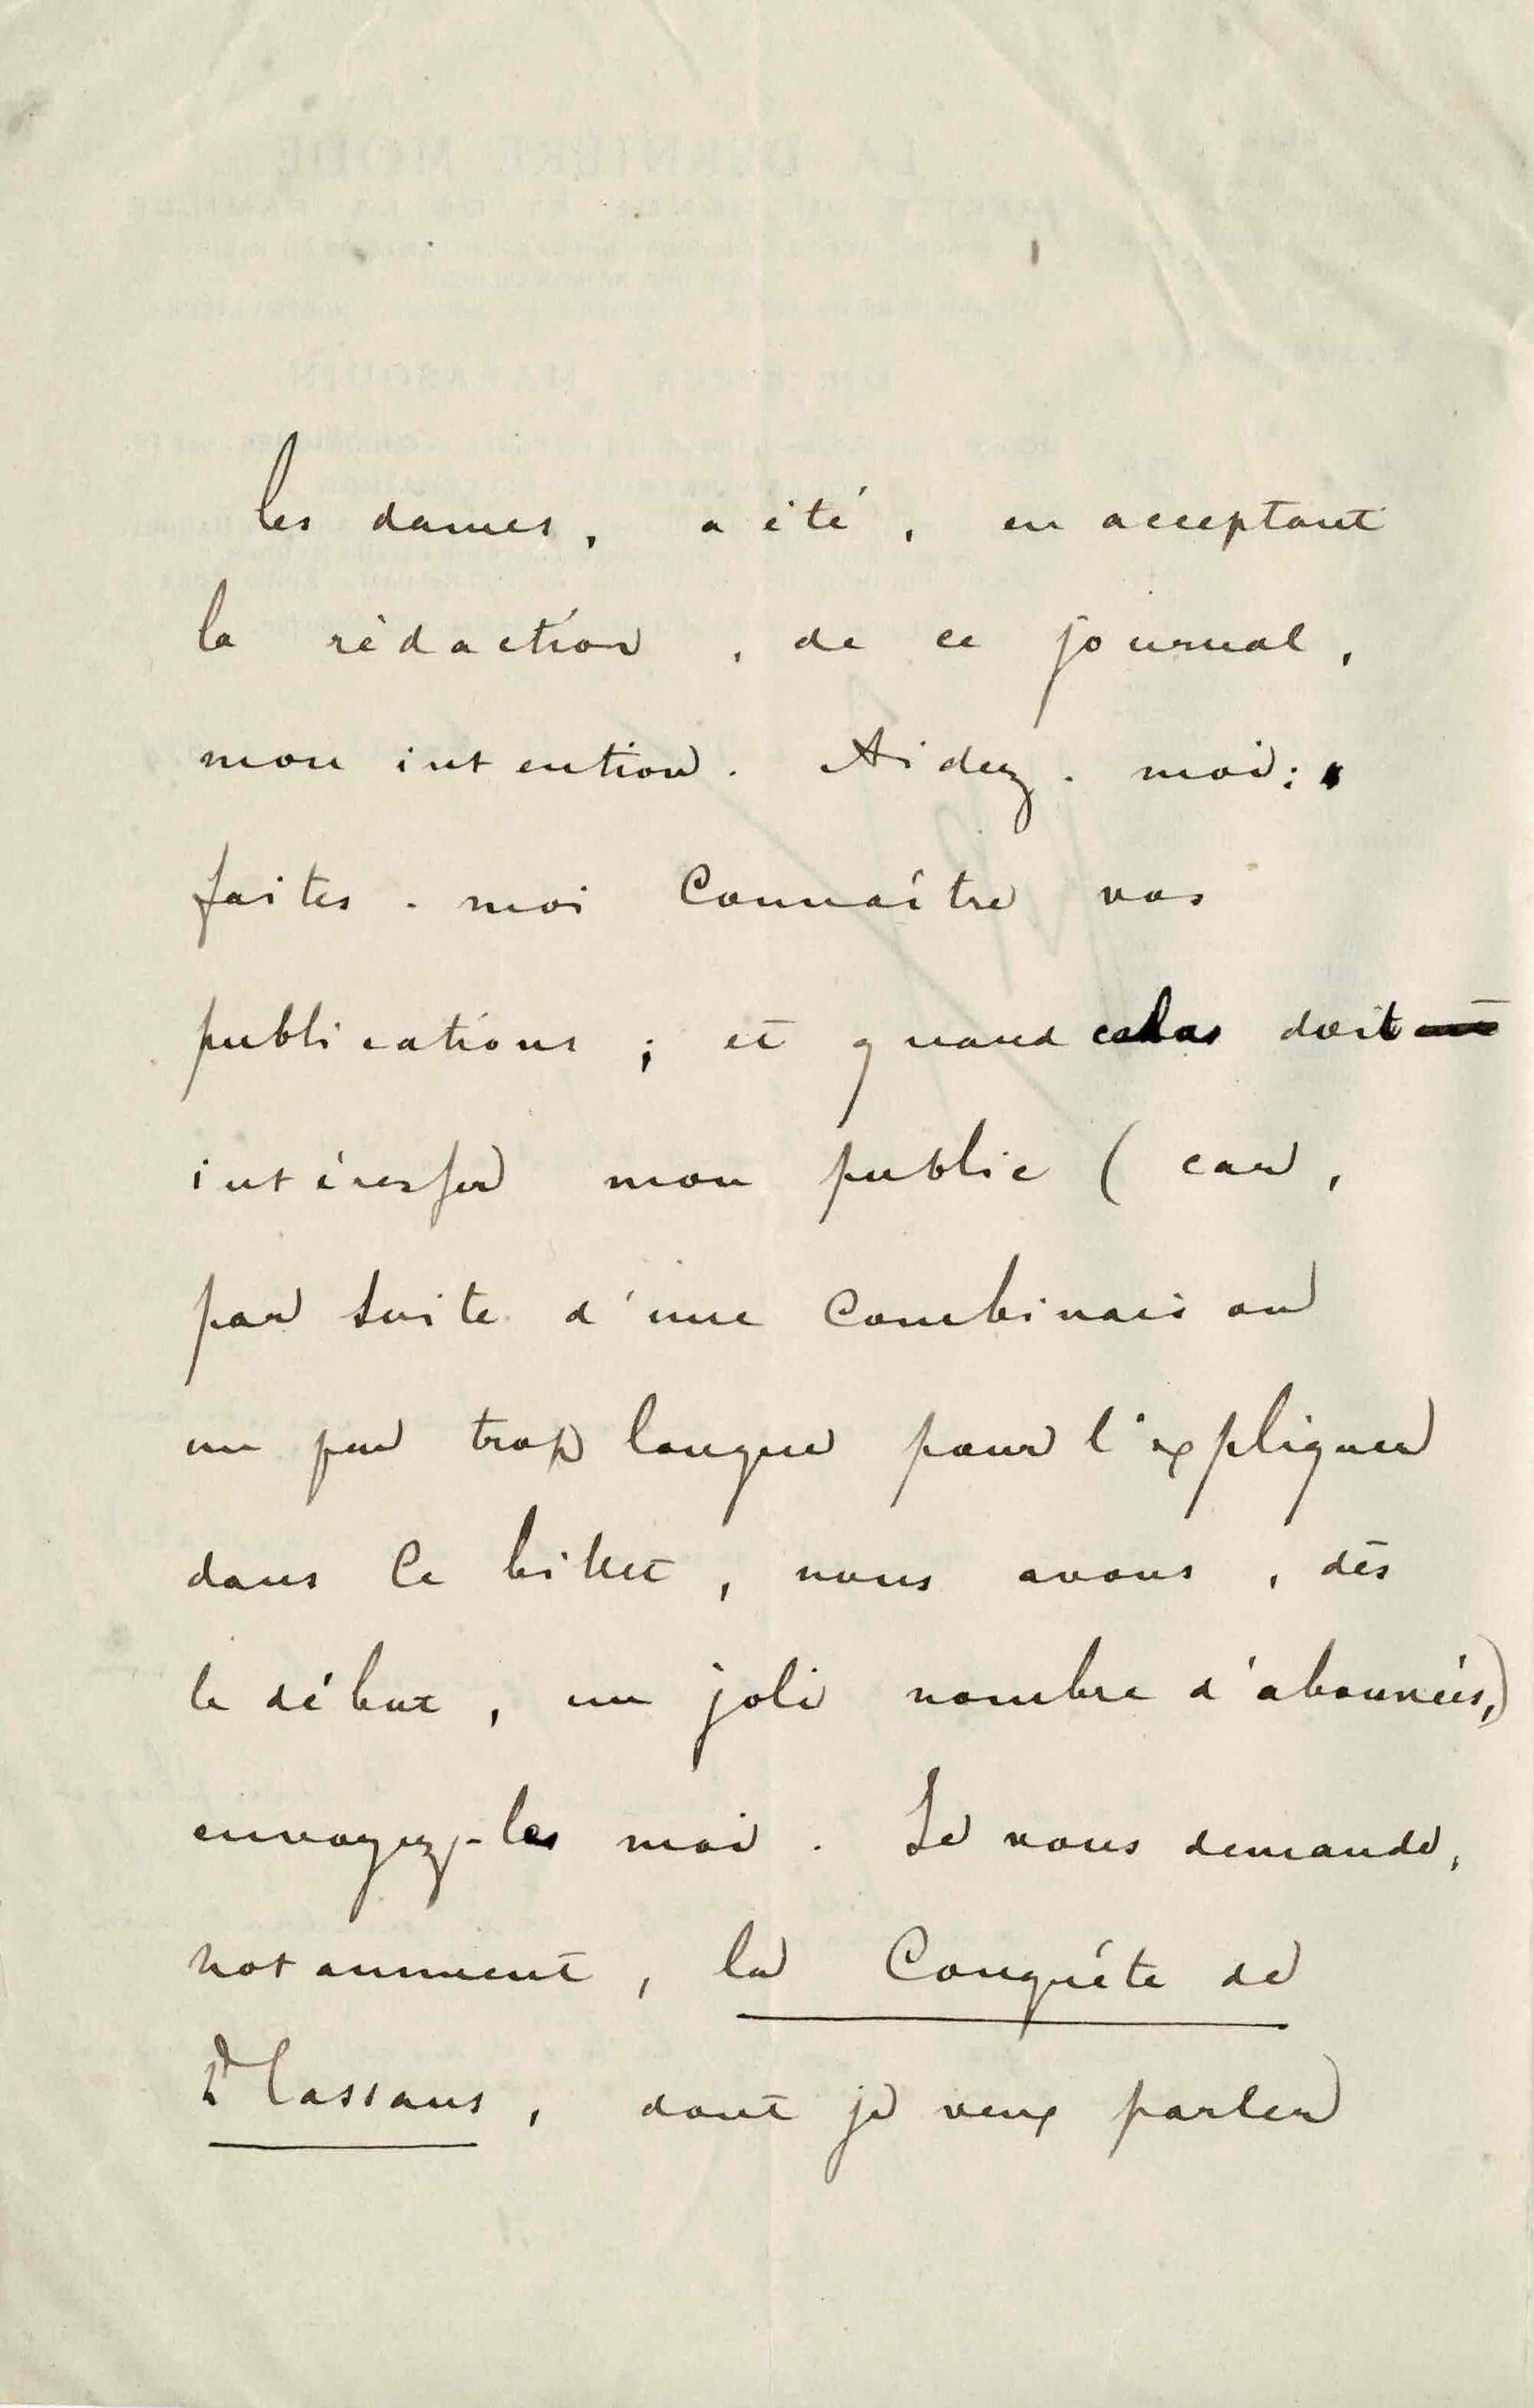 les dames, a été, en acceptant
la rédaction, de ce journal,
mon intention. Aidez-moi:
faites-moi Connaître vos
publications; et quand cela doit
intéresser mon public (car,
par suite d'une Combinaison
un peu trop longue pour l'expliquer
dans ce billet, nous avons, dès
le début, un joli nombre d'abonnées,)
envoyez-les moi. Je vous demande,
notamment, la Conquête de
Plassans, dont je veux parler